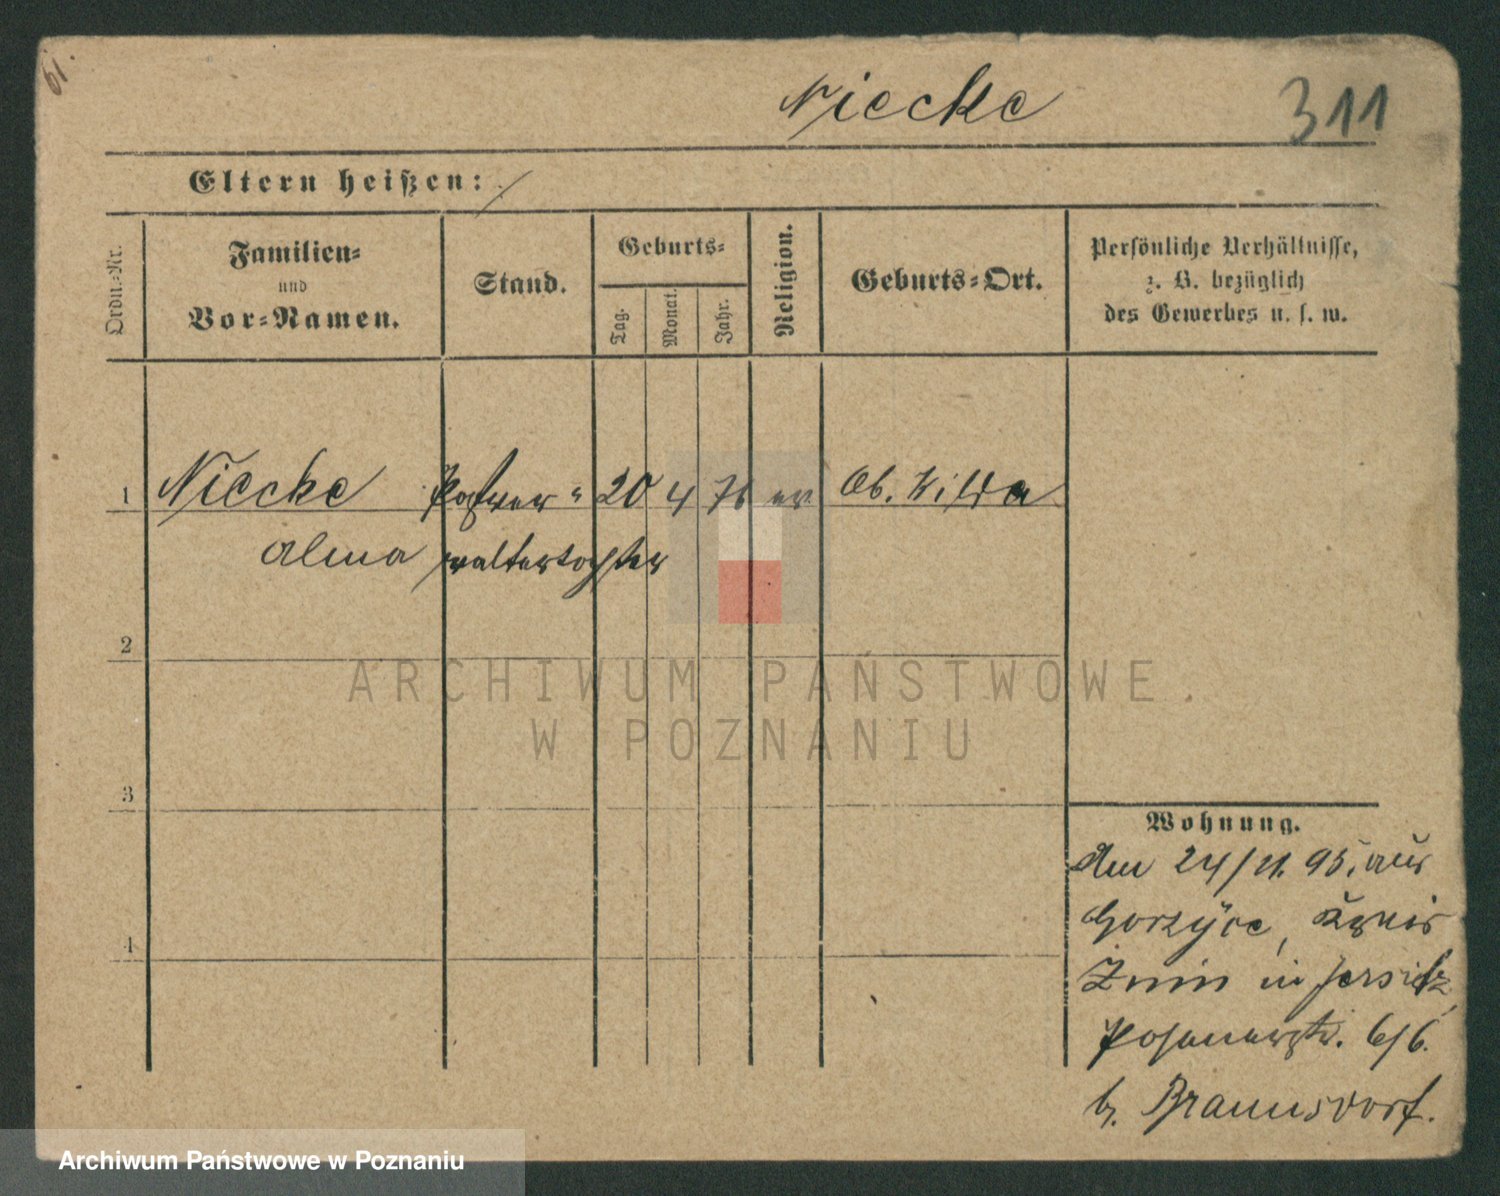 61.
Niecke
311
Eltern heißen:
Ordn.-Nr.
Familien-
und
Vor-Namen.
Stand.
Geburts-
Tag.
Monat.
Jahr.
Religion.
Geburts-Ort.
Persönliche Verhältnisse,
z. B. bezüglich
des Gewerbes u. s. w.
1 Niecke 20 4 76 ev Ob. Wilda
Alma
2
3
4
Wohnung.
Am 24/11. 95. aus
Gorzyce, Kreis
Znin in Jersitz,
Posenerstr. 6
b. Braunsdorf.
ARCHIWUM PAŃSTWOWE
W POZNANIU
Archiwum Państwowe w Poznaniu